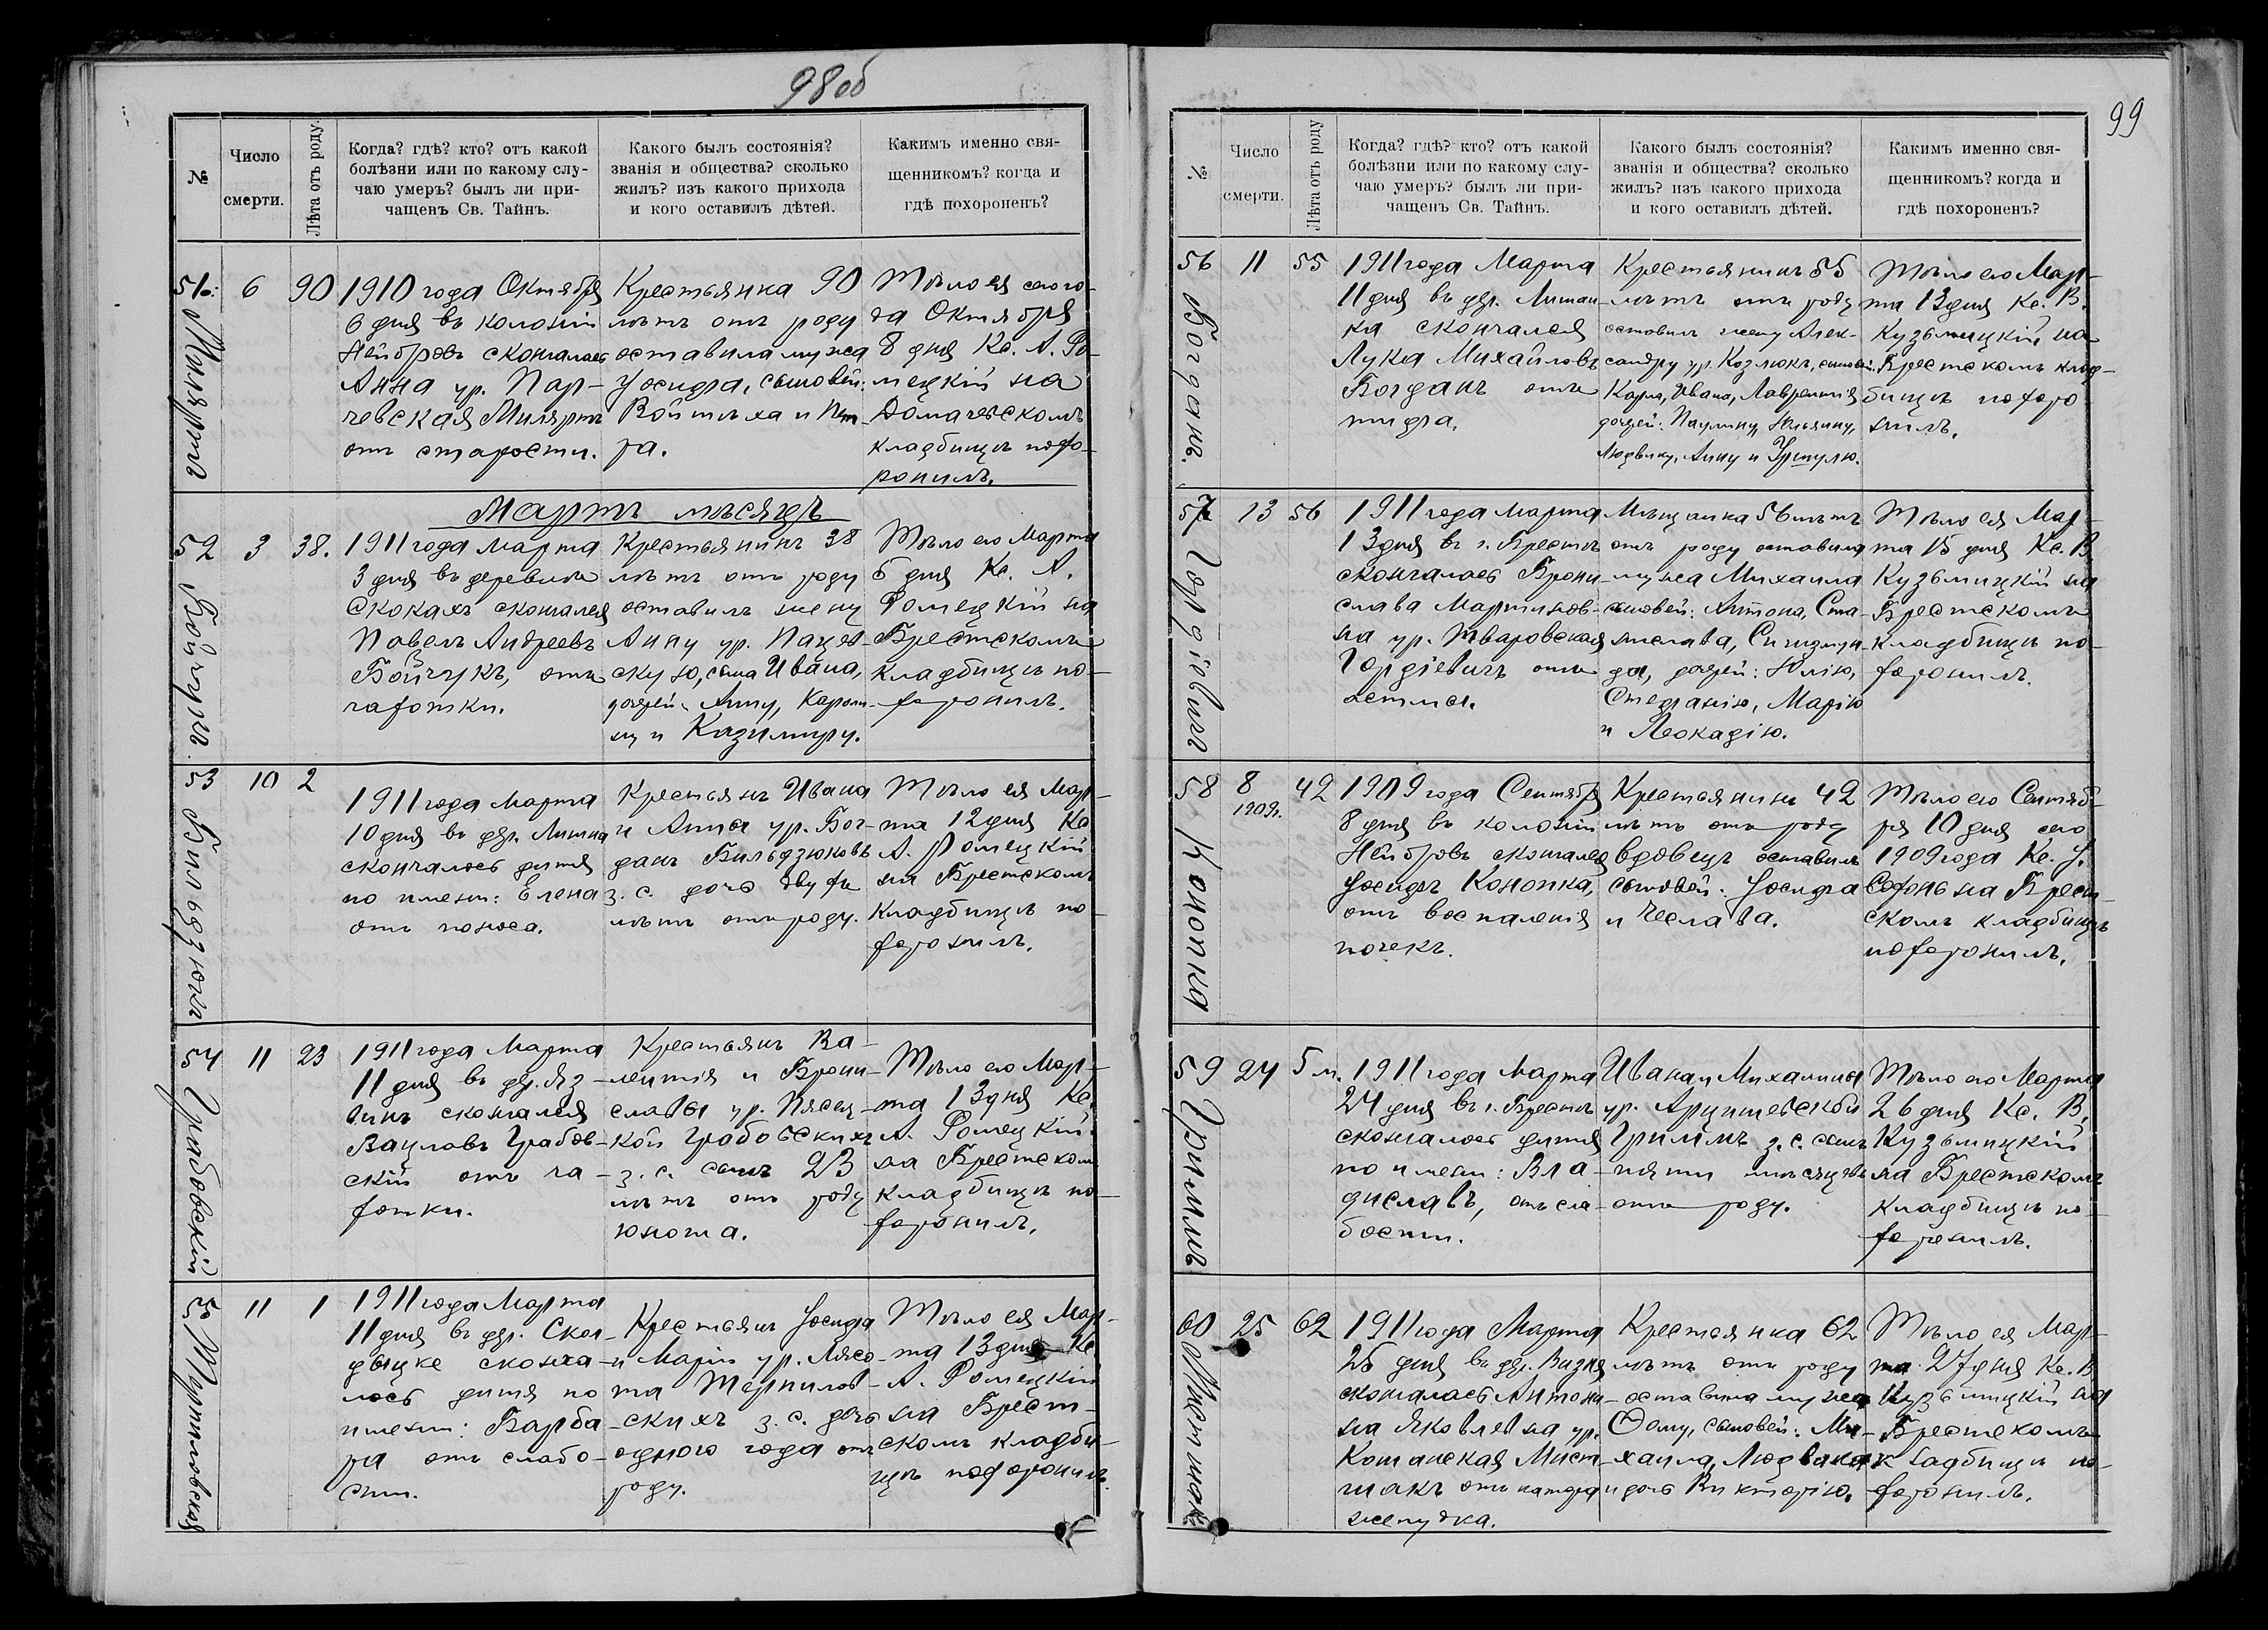 98 об
№
Число смерти.
Лѣта отъ роду.
Когда? гдѣ? кто? отъ какой
болѣзни или по какому слу-
чаю умеръ? былъ ли при-
чащенъ Св. Тайнъ.
Какого былъ состоянія?
званія и общества? сколько
жилъ? изъ какого прихода
и кого оставилъ дѣтей.
Каким именно свя-
щенникомъ? когда и
гдѣ похороненъ?
51.
Милярть
6
90
1910 года Октября
6 дня въ колоніи
Нейбровъ скончалась
Анна ур. Пар-
чевская Милярть
отъ старости.
Крестьянка 90
лѣтъ отъ роду
оставила мужа
Іосифа, сыновей:
Войтѣха и Пет-
ра.
Тѣло ея сего го-
да Октября
8 дня Кс. А. Ро-
мецкій на
Домачевскомъ
кладбищѣ похо-
ронилъ.
Мартъ мѣсяцъ
52
Бойчукъ.
3
38.
1911 года Марта
3 дня въ деревнѣ
Скокахъ скончался
Павелъ Андреевъ
Бойчукъ, отъ
чахотки.
Крестьянинъ 38
лѣтъ отъ роду
оставилъ жену
Анну ур. Пацев-
скую, сына Ивана,
дочерей: Анну, Кароли-
ну и Казимиру.
Тѣло его Марта
5 дня Кс. А.
Ромецкій на
Брестскомъ
кладбищѣ по-
хоронилъ.
53
Бильдзюкъ
10
2
1911 года Марта
10 дня въ дер. Литна
скончалось дитя
по имени: Елена
отъ поноса.
Крестьянъ Ивана
и Анны ур. Бог-
данъ Бильдзюковъ
з. с. дочь двухъ
лѣтъ отъ роду.
Тѣло ея Мар-
та 12 дня Кс.
А. Ромецкій
на Брестскомъ
кладбищѣ по-
хоронилъ.
54
Грабовскій
11
23
1911 года Марта
11 дня въ дер. Яз-
винъ скончался
Вацлавъ Грабов-
скій отъ ча-
хотки.
Крестьянъ Ва-
лентія и Брони-
славы ур. Пясец-
кой Грабовскихъ
з. с. сынъ 23
лѣтъ отъ роду
юноша.
Тѣло его Мар-
та 13 дня Кс.
А. Ромецкій
на Брестскомъ
кладбищѣ по-
хоронилъ.
55
11
1
1911 года Марта
11 дня въ дер. Скол-
дыцке сконча-
лось дитя по
имени: Барба-
ра отъ слабо-
сти.
Крестьянъ Іосифа
и Маріи ур. Лясо-
та Терпилов-
скихъ з. с. дочь
одного года отъ
роду.
Тѣло ея Мар-
та 13 дня Кс.
А. Ромецкій
на Брест-
скомъ кладби-
щѣ похоронилъ.
99
№
Число смерти.
Лѣта отъ роду
Когда? гдѣ? кто? отъ какой
болѣзни или по какому слу-
чаю умеръ? былъ ли при-
чащенъ Св. Тайнъ.
Какого былъ состоянія?
званія и общества? сколько
жилъ? изъ какого прихода
и кого оставилъ дѣтей.
Какимъ именно свя-
щенникомъ? когда и
гдѣ похороненъ?
56
Богданъ.
11
55
1911 года Марта
11 дня въ дер.
скончался
Лука Михайловъ
Богданъ отъ
тифа.
Крестьянинъ 55
лѣтъ отъ роду
оставилъ жену Алек-
сандру ур. Козлюкъ, сыновей:
Карла, Ивана, Лаврентія
дочерей: Паулину, Юльянну,
Людвику, Анну и Уршулю.
Тѣло его Мар-
та 13 дня Кс. В.
Кузьмицкій на
Брестскомъ клад-
бищѣ похоро-
нилъ.
57
Гордіевичъ
13
56
1911 года Марта
13 дня въ г. Брестѣ
скончалась Брони-
слава Мартинов-
на ур. Тваровская
Гордіевичъ отъ
астмы.
Мѣщанка 56 лѣтъ
отъ роду оставила
мужа Михаила
сыновей: Антона, Ста-
нислава, Сигизмун-
да, дочерей: Юлію,
Стефанію, Марію
и Леокадію.
Тѣло ея Мар-
та 15 дня Кс. В.
Кузьмицкій на
Брестскомъ
кладбищѣ по-
хоронилъ.
58
Конопка
8
1909г.
42
1909 года Сентября
8 дня въ колоніи
Нейбровъ скончался
Іосифъ Конопка,
отъ воспаленія
почекъ.
Крестьянинъ 42
лѣтъ отъ роду
вдовецъ оставилъ
сыновей: Іосифа
и Чеслава.
Тѣло его Сентяб-
ря 10 дня сего
1909 года Кс. У.
на Брест-
скомъ кладбищѣ
похоронилъ.
59
Гриммъ
24
5 м.
1911 года Марта
24 дня въ г. Брестѣ
скончалось дитя
по имени: Вла-
диславъ, отъ сла-
бости.
Ивана и Михалины
ур. Арцишевской
Гриммъ з. с. сынъ
пяти мѣсяцевъ
отъ роду.
Тѣло его Марта
26 дня Кс. В.
Кузьмицкій
на Брестскомъ
кладбищѣ по-
хоронилъ.
60
25
62
1911 года Марта
25 дня въ дер. Визня
скончалась Антони-
на Яковлевна ур.
Котанская Мист-
шакъ отъ катарра
желудка.
Крестьянка 62
лѣтъ отъ роду
оставила мужа
Ѳому, сыновей: Ми-
хаила, Людвика
и дочь Викторію.
Тѣло ея Мар-
та 27 дня Кс. В.
Кузьмицкій на
Брестскомъ
кладбищѣ по-
хоронилъ.